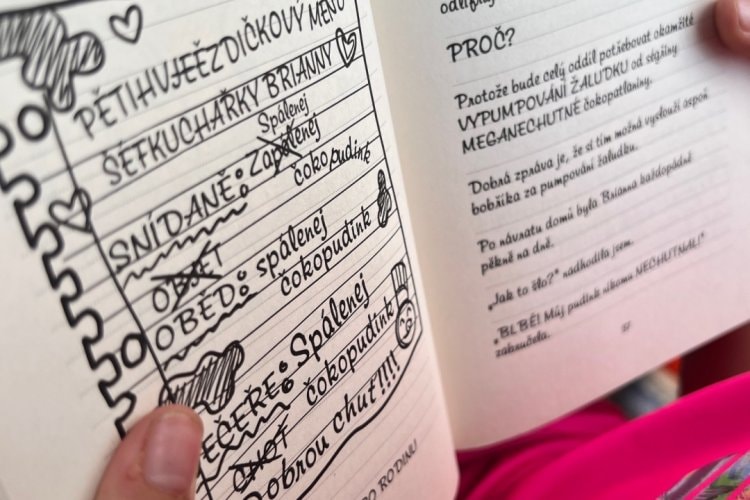 PĚTIHVJEĚZDIČKOVÝ MENU
ŠÉFKUCHAŘKY BRIANNY
Spálenej
SNÍDANĚ: Zapálenej
čokopudink
OBJET
OBĚD: spálenej
čokopudink
EČEŘE: Spálenej
čokopudink
Dobrou chuť!!!!
RODINU
PROČ?
Protože bude celý oddíl potřebovat okamžitě
VYPUMPOVÁNÍ ŽALUDKU od ségiiny
MEGANECHUTNÉ čokopatlaniny.
Dobrá zpráva je, že si tím možná vyslouží aspoň
bobříka za pumpování žaludku.
Po návratu domů byla Brianna každopádně
pěkně na dně.
„Jak to šlo?“ nadhodila jsem.
„BL'BĚ! Můj pudink nikomu NECHUTNAL!“
zabručela.